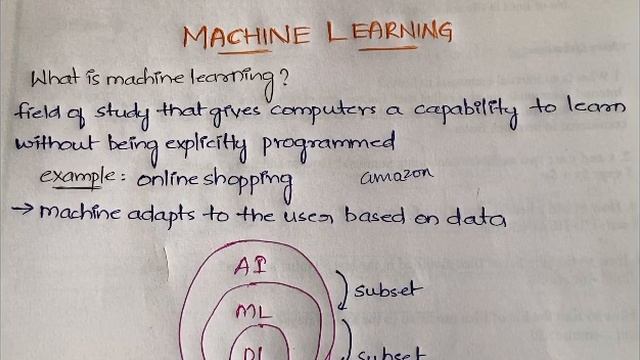 MACHINE LEARNING
What is machine learning?
field of study that gives computers a capability to learn
without being explicitly programmed
example: online shopping amazon
→ machine adapts to the user based on data
AI
subset
ML
subset
DL